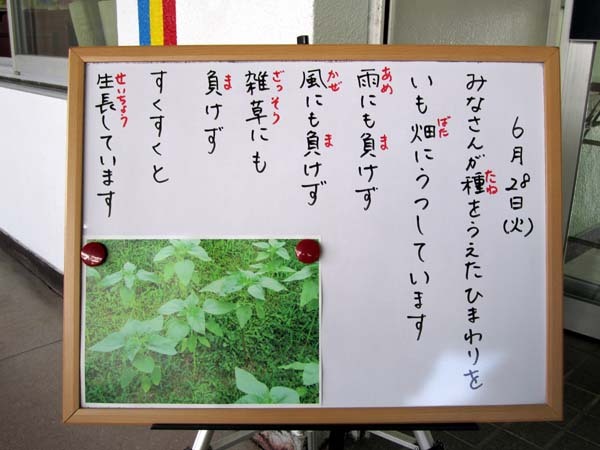 6月28日(火)
みなさんが種をうえたひまわりを
たね
いも畑にうつしています
ばた
雨にも負けず
あめ ま
風にも負けず
かぜ ま
雑草にも
ざっそう
負けず
ま
すくすくと
生長しています
せいちょう